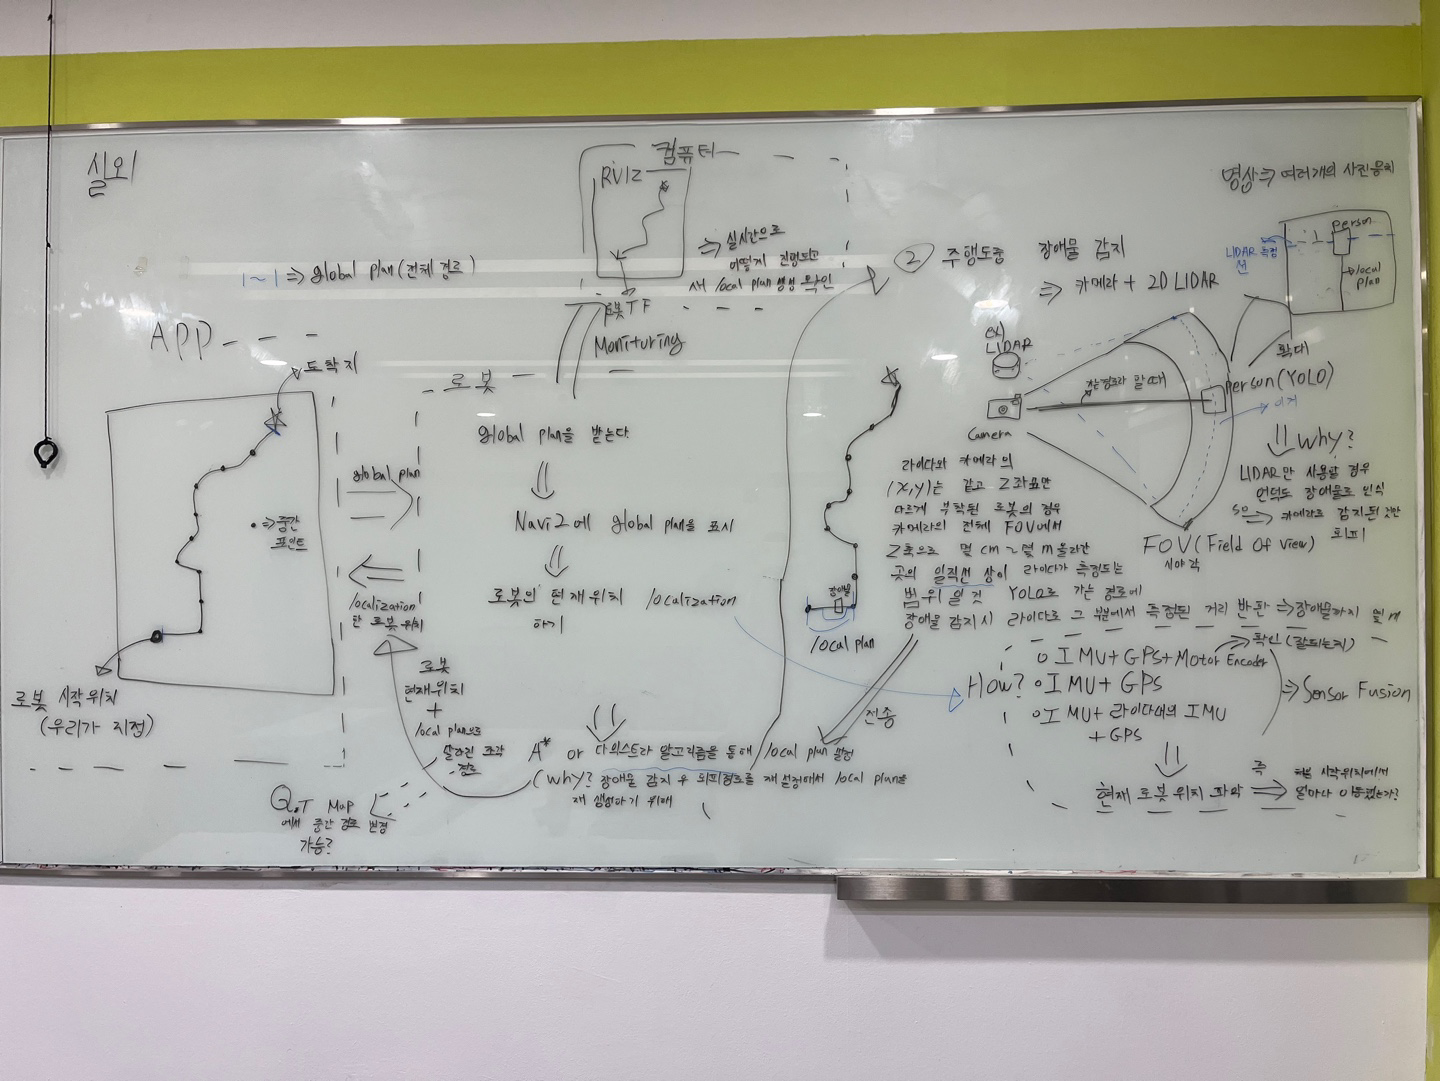 실외
|~| ⇒ global plan (전체 경로)
APP
도착지
⇒ 중간
포인트
로봇 시작 위치
(우리가 지정)
global plan
localization
한 로봇 위치
로봇
현재 위치
+
local plan으로
달라진 조각
경로
QoT Map
에서 중간 경로 변경
가능?
컴퓨터
RVIZ
로봇 TF
⇒ 실시간으로
어떻게 진행되고
새 local plan 생성 확인
Monituring
로봇
global plan을 받는다.
Navi2에 global plan을 표시
로봇의 현재 위치 localization
하기
A* or 다익스트라 알고리즘을 통해 local plan 설정
(why? 장애물 감지 후 회피경로를 재 설정해서 local plan을
재 생성하기 위해
② 주행도중 장애물 감지
⇒ 카메라 + 2D LIDAR
장애물
local plan
전송
ex)
LIDAR
Camera
갈 때
person (YOLO)
이거
확대
영상 ⇒ 여러개의 사진 뭉치
person
LIDAR 측정
선
local
plan
⇓ why?
LIDAR만 사용할 경우
언덕도 장애물로 인식
so ⇒ 카메라로 감지된 것만
회피
FOV (Field Of View)
시야각
라이다와 카메라의
(X,Y)는 같고 Z좌표만
다르게 부착된 로봇의 경우
카메라의 전체 FOV에서
Z축으로 몇 cm ~ 몇 m 올라간
곳의 일직선 상이 라이다가 측정되는
범위 일 것 YOLO로 가는 경로에
장애물 감지시 라이다로 그 부분에서 측정된 거리 반환 ⇒ 장애물까지 몇 m
How?
o IMU + GPS + Motor Encoder
⇒ 확인 (잘 되는지)
o IMU + GPS
o IMU + 라이다내의 IMU
+ GPS
⇒ Sensor Fusion
현재 로봇 위치 파악
즉
⇒ 처음 시작위치에서
얼마나 이동했는가?